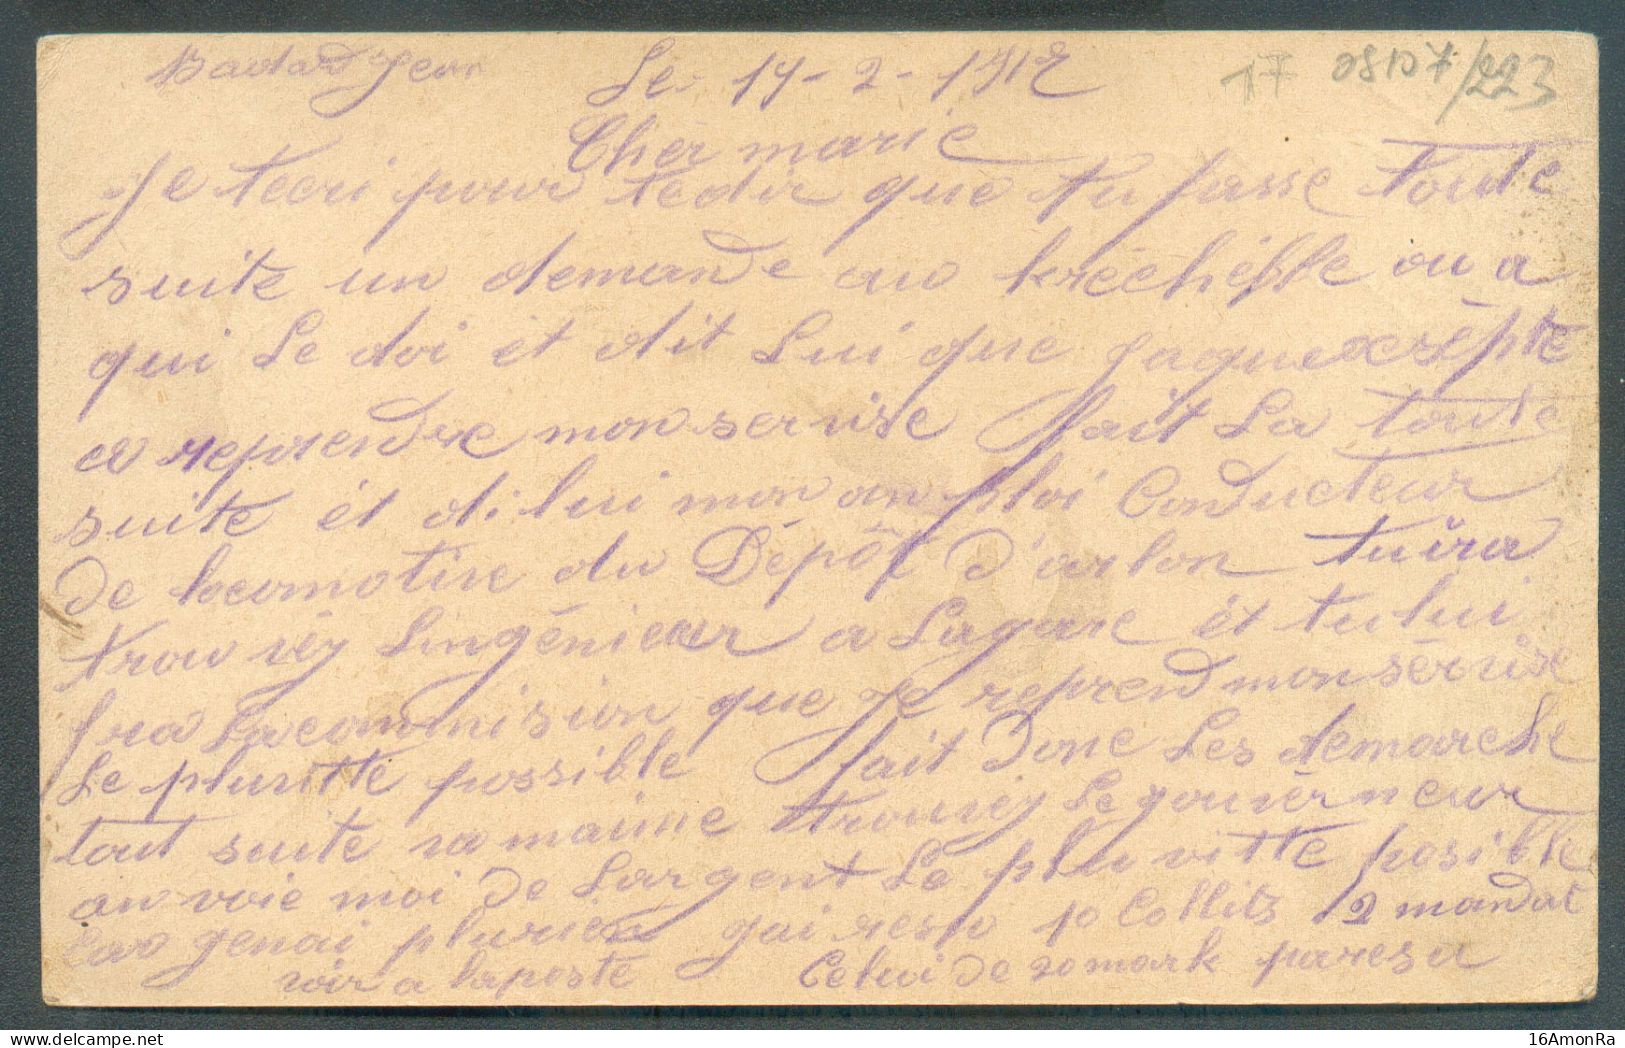 Badard Jean
Le 14-2-1917
17 08107/223
Cher marie
Je tecri pour tedir que tu fasse toute
suite un demande au kréchéfble ou a
qui Le doi et dit Lui que jaquexsépte
a reprendre mon servise fait La toute
suite et di lui mon anploi Conducteur
De locomotive du Dépôt D'arlon tuira
trouvéy Lingénieur a Lagare et tului
fra Lacommision que Je reprend monservise
Le plusitte possible fait Donc Les demarche
tout suite va maime trouvéy Legouvérneur
anvoie moi De Largent Le plu vitte posible
Car genai plurien jai resu 10 Collits 2 mandat
voir a laposte Celui De 20 mark paresa
16AmonRa